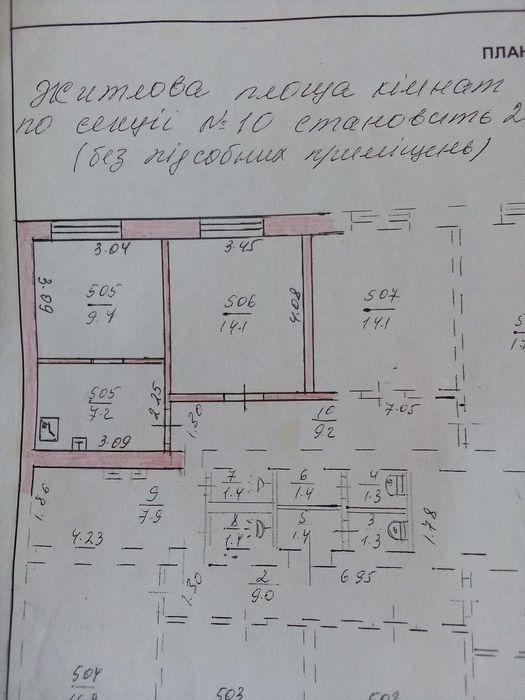 ПЛАН
Житлова площа кімнат
по секції №10 становить 2
(без підсобних приміщень)
3.04
3.45
3.09
505
9.4
506
14.1
4.08
507
14.1
505
7.2
2.25
3.09
1.30
10
9.2
7.05
1.86
9
7.9
4.23
7
1.4
6
1.4
4
1.3
8
1.4
5
1.4
3
1.3
1.78
1.30
2
9.0
6.95
504
503
502